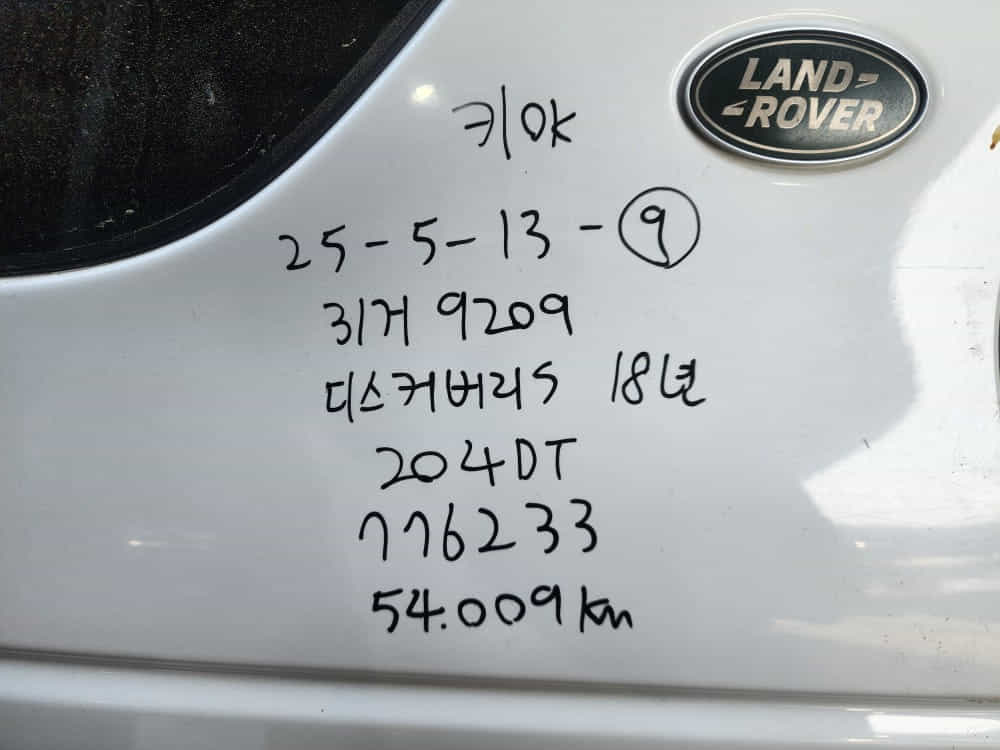 LAND
ROVER
키OK
25-5-13-⑨
31거 9209
디스커버리5 18년
204DT
776233
54.009km